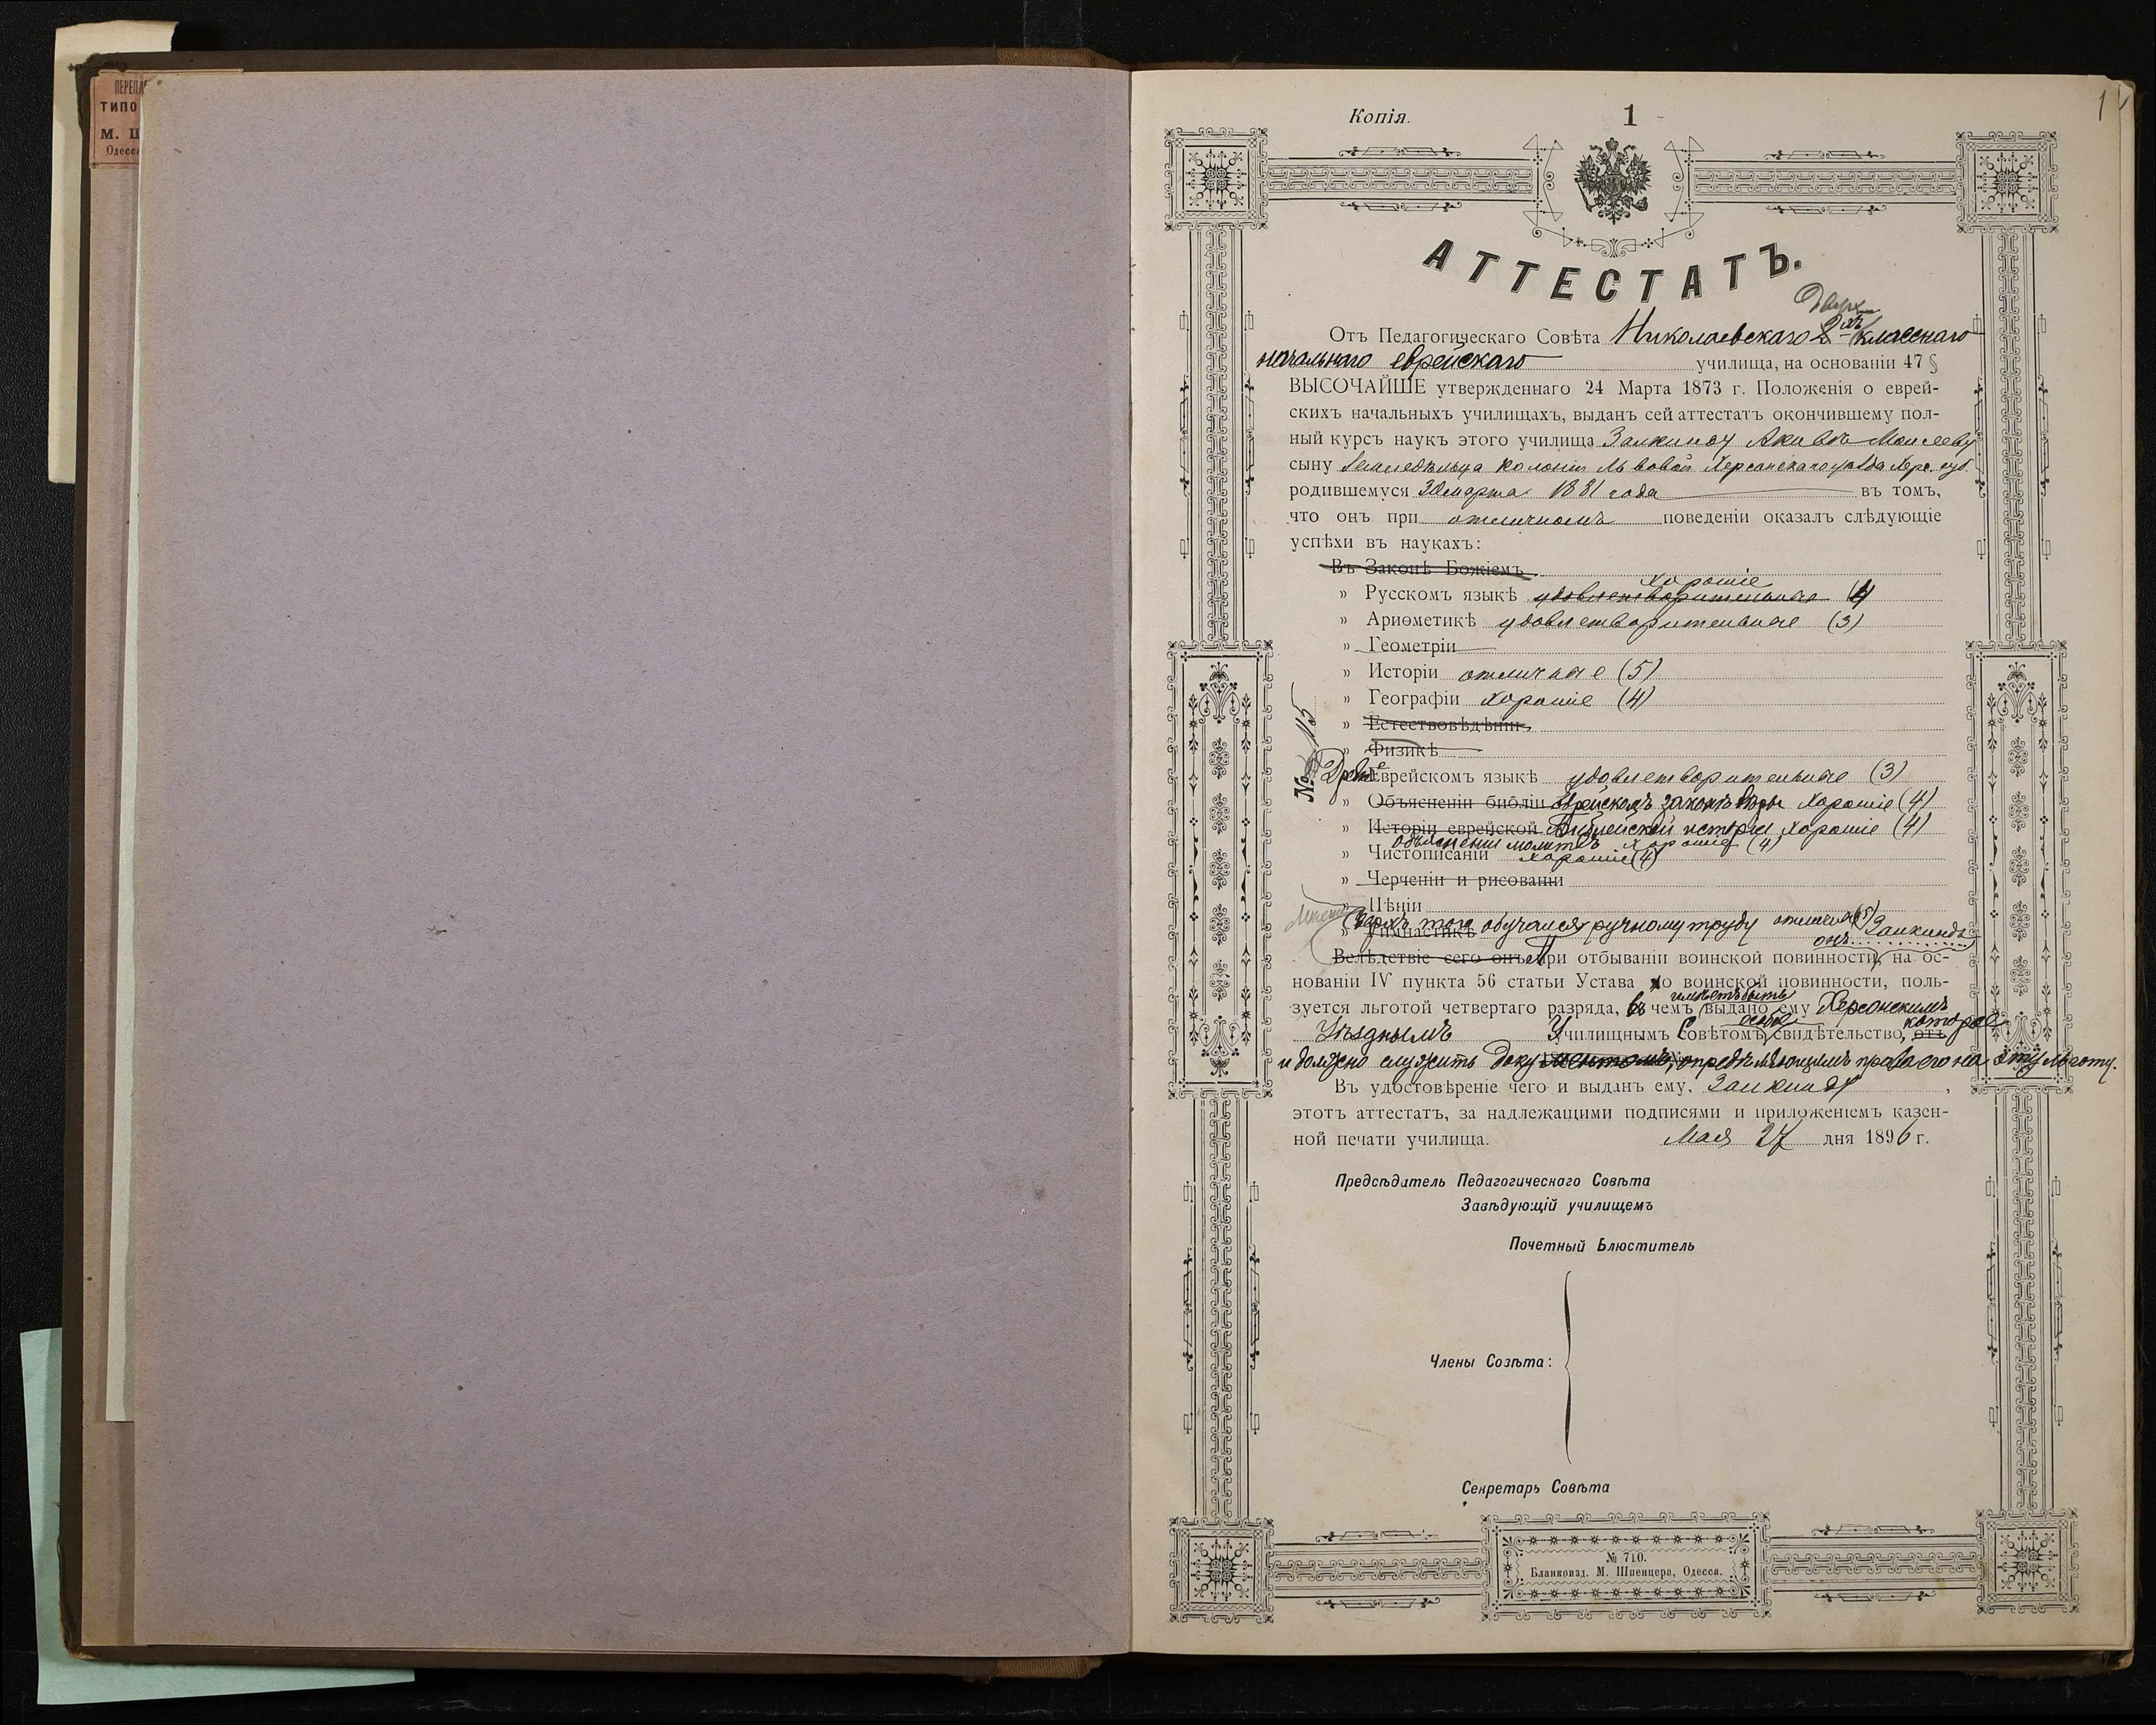 ПЕРЕПЛ
ТИПО
М. Ш
Одесс
Копія.
1
1
АТТЕСТАТЪ.
Отъ Педагогическаго Совѣта Николаевскаго 2-хъ класснаго
начальнаго еврейскаго училища, на основаніи 47 §
ВЫСОЧАЙШЕ утвержденнаго 24 Марта 1873 г. Положенія о еврей-
скихъ начальныхъ училищахъ, выданъ сей аттестатъ окончившему пол-
ный курсъ наукъ этого училища Заикинду Акивѣ Моисееву
сыну Земледѣльца колоніи Львовой Херсонскаго уѣзда Херс. губ.
родившемуся 30 марта 1881 года въ томъ,
что онъ при отличномъ поведеніи оказалъ слѣдующіе
успѣхи въ наукахъ:
Въ Законѣ Божіемъ
хорошіе
» Русскомъ языкѣ удовлетворительные (4)
» Ариѳметикѣ удовлетворительные (3)
» Геометріи
» Исторіи отличные (5)
» Географіи хорошіе (4)
» Естествовѣдѣніи
» Физикѣ
№ 115
Древне Еврейскомъ языкѣ удовлетворительные (3)
» Объясненіи библіи Еврейскомъ законѣ вѣры хорошіе (4)
» Исторіи еврейской Библейской исторіи хорошіе (4)
объясненіи молитвъ хорошіе (4)
» Чистописаніи хорошіе (4)
» Черченіи и рисованіи
» Пѣніи
Сверхъ того обучался ручному труду отлично (5) Заикиндъ
» Гимнастикѣ
онъ
Вслѣдствіе сего онъ При отбываніи воинской повинности, на ос-
нованіи IV пункта 56 статьи Устава о воинской повинности, поль-
зуется льготой четвертаго разряда, въ чемъ имѣетъ быть выдано ему Херсонскимъ
Уѣзднымъ Училищнымъ Совѣтомъ особое свидѣтельство, отъ которое
и должно служить документомъ, опредѣляющимъ права его на эту льготу.
Въ удостовѣреніе чего и выданъ ему, Заикинду,
этотъ аттестатъ, за надлежащими подписями и приложеніемъ казен-
ной печати училища. Мая 27 дня 1896 г.
Предсѣдатель Педагогическаго Совѣта
Завѣдующій училищемъ
Почетный Блюститель
Члены Совѣта:
Секретарь Совѣта
№ 710.
Бланкоизд. М. Шпенцера, Одесса.